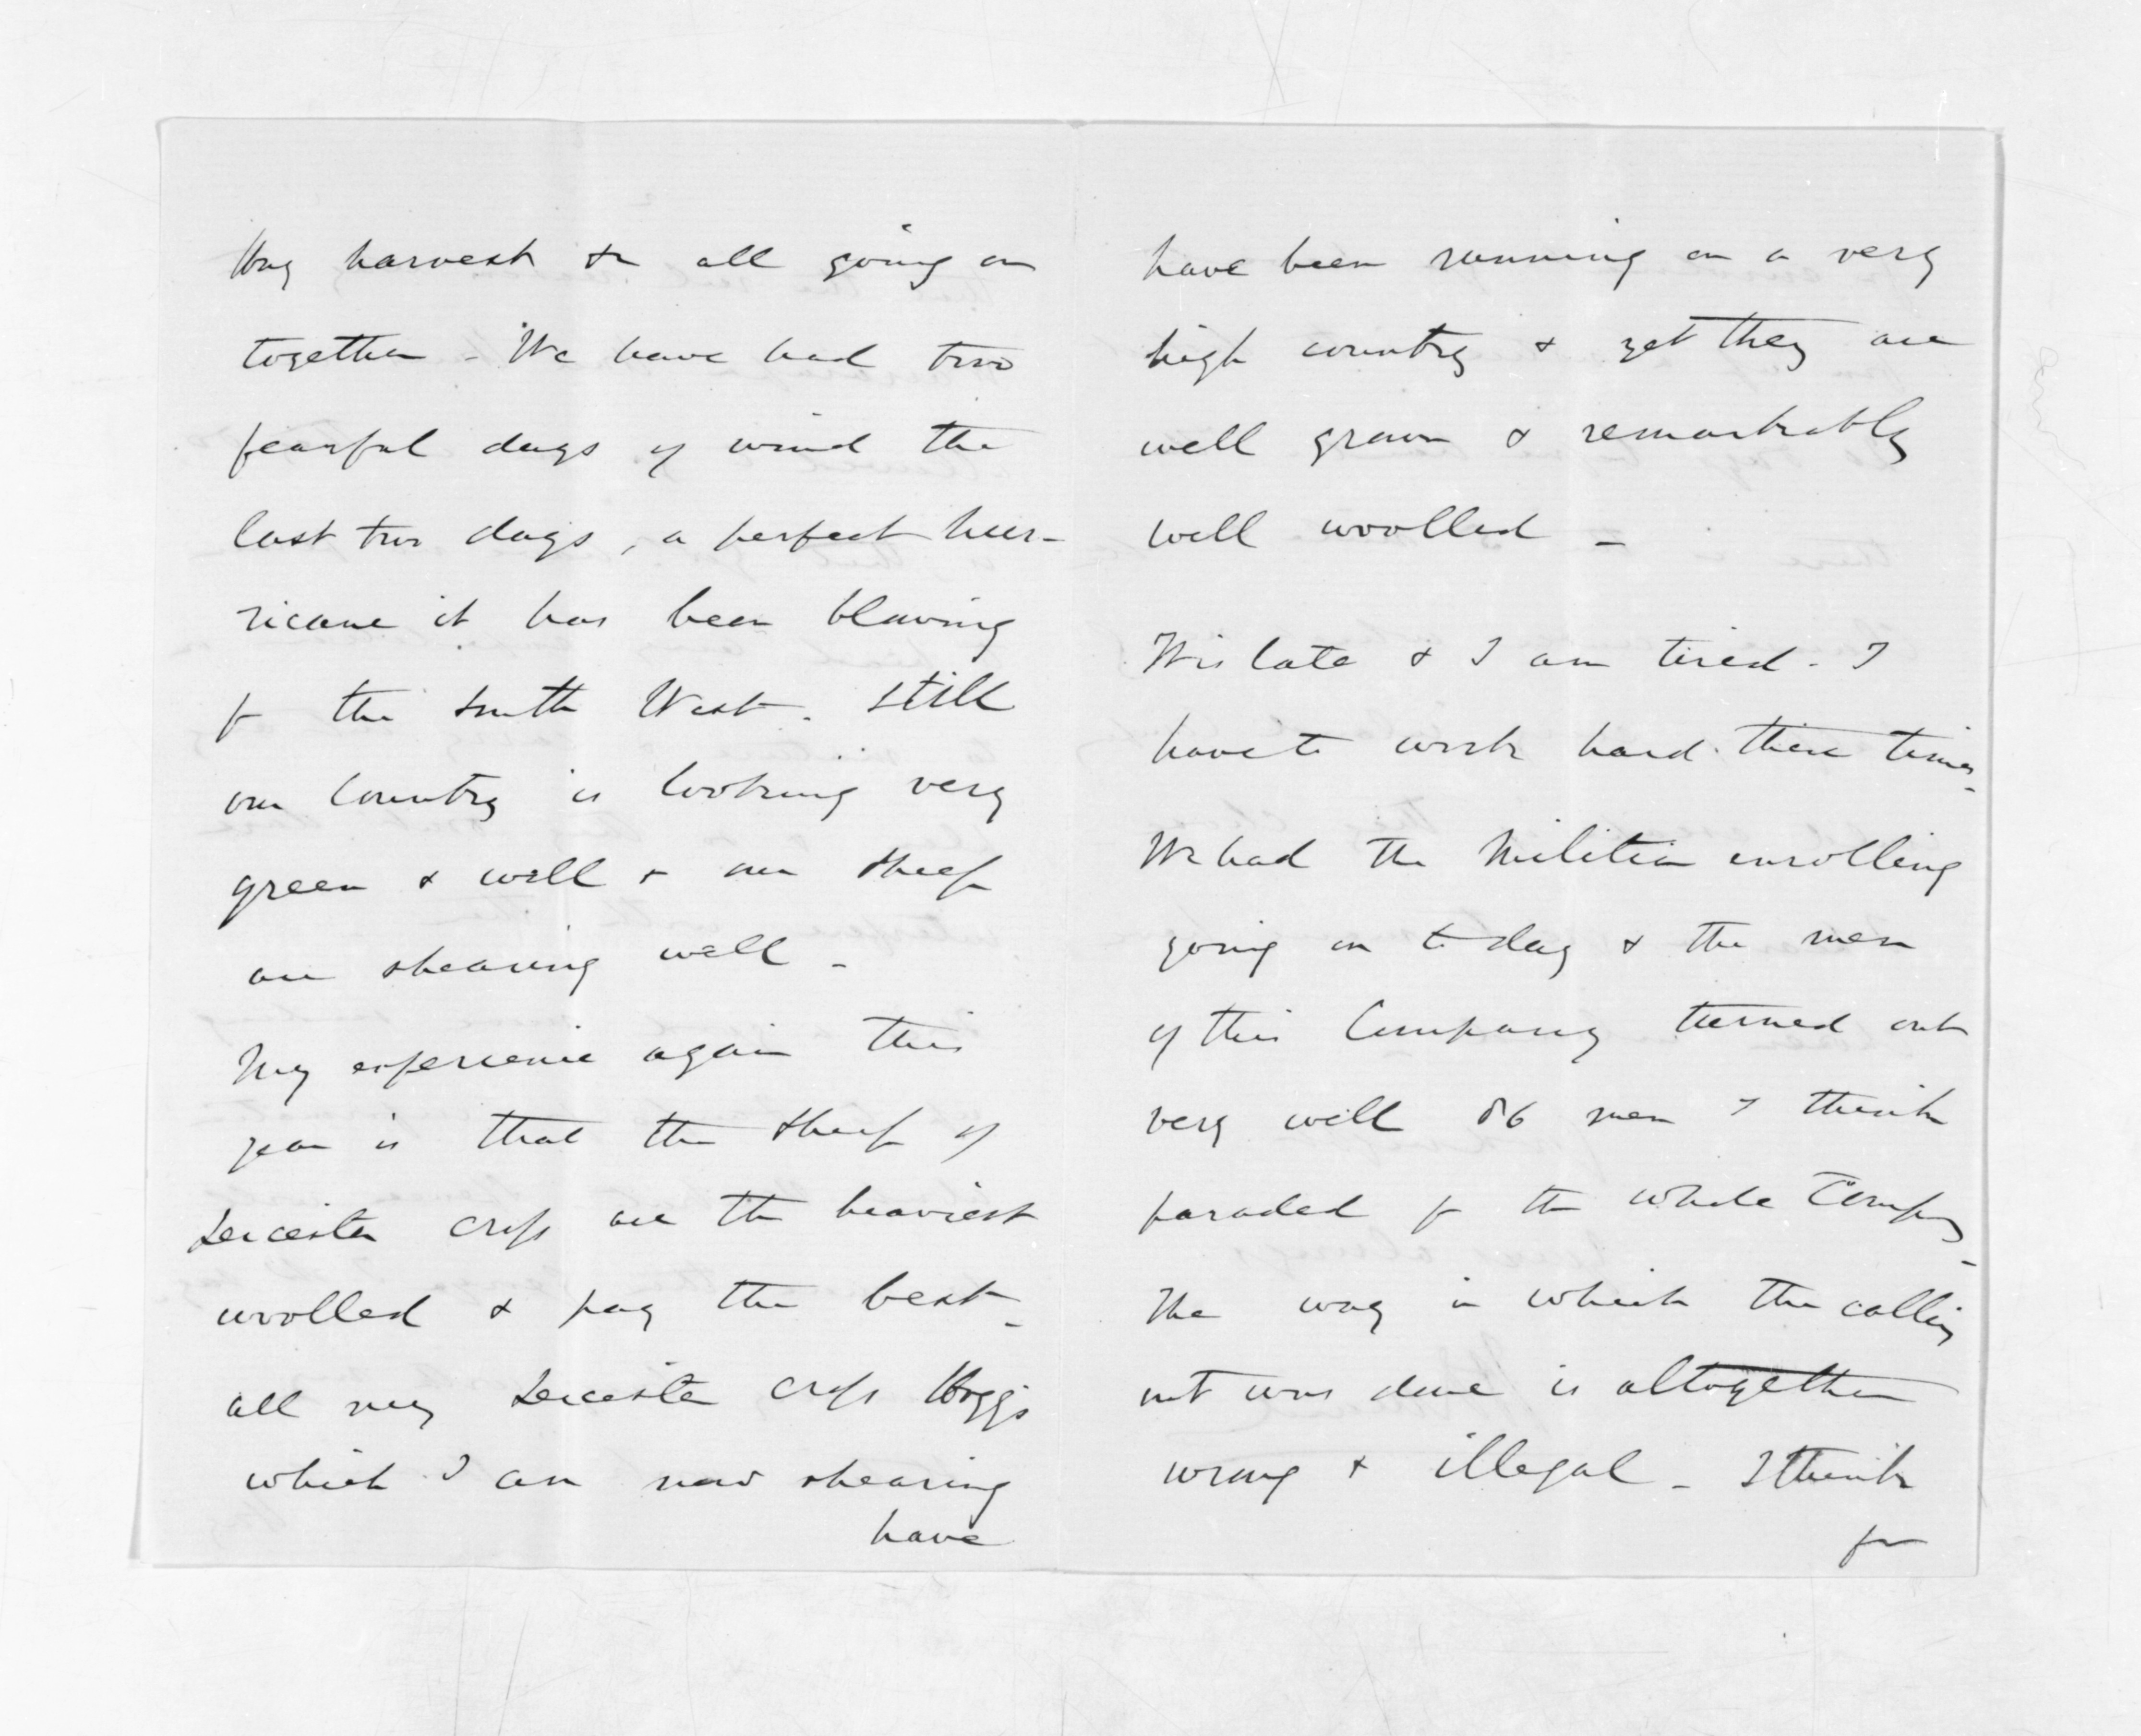 Hay harvest &c all going on
together - We have had two
fearful days of wind the
last two days, a perfect hur-
ricane it has been blowing
fr the South West. Still
our Country is looking very
green & well & our Sheep
are shearing well -
My experience again this
year is that the Sheep of
Leicester cross are the heaviest
woolled & pay the best -
all my Leicester cross Hoggs
which I am now shearing
have
have been running on a very
high country & yet they are
well grown & remarkably
well woolled -
Tis late & I am tired - I
have to work hard these times -
We had the Militia enrolling
going on to day & the men
of this Company turned out
very well 86 men I think
paraded fr the whole Compy -
The way in which the calling
out was done is altogether
wrong & illegal - I think
for